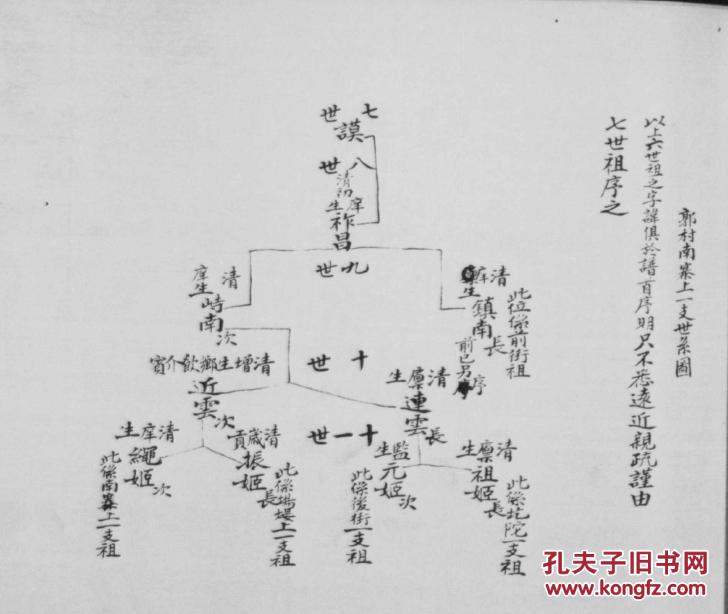 郭村南寨上一支世系圖
以上六世祖之字諱俱於譜首序明只不悉遠近親疏謹由
七世祖序之
七世
謨
八世
清初庠生
祚昌
九世
清庠生
鎮南
長
前已另序
此位係前街祖
清庠生
峙南
次
十世
清廪生
連雲
長
清增生鄉飲介賓
近雲
次
十一世
清廪生
祖姬
長
此係坨陀一支祖
監生
元姬
次
此係後街一支祖
清歲貢
振姬
長
此係場堤上一支祖
清庠生
繩姬
次
此係南寨上一支祖
孔夫子旧书网
www.kongfz.com